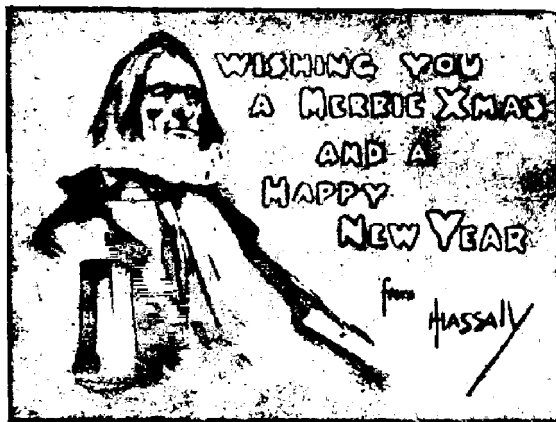 WISHING YOU
A MERRIE XMAS
AND A
HAPPY
NEW YEAR
from
HASSALL